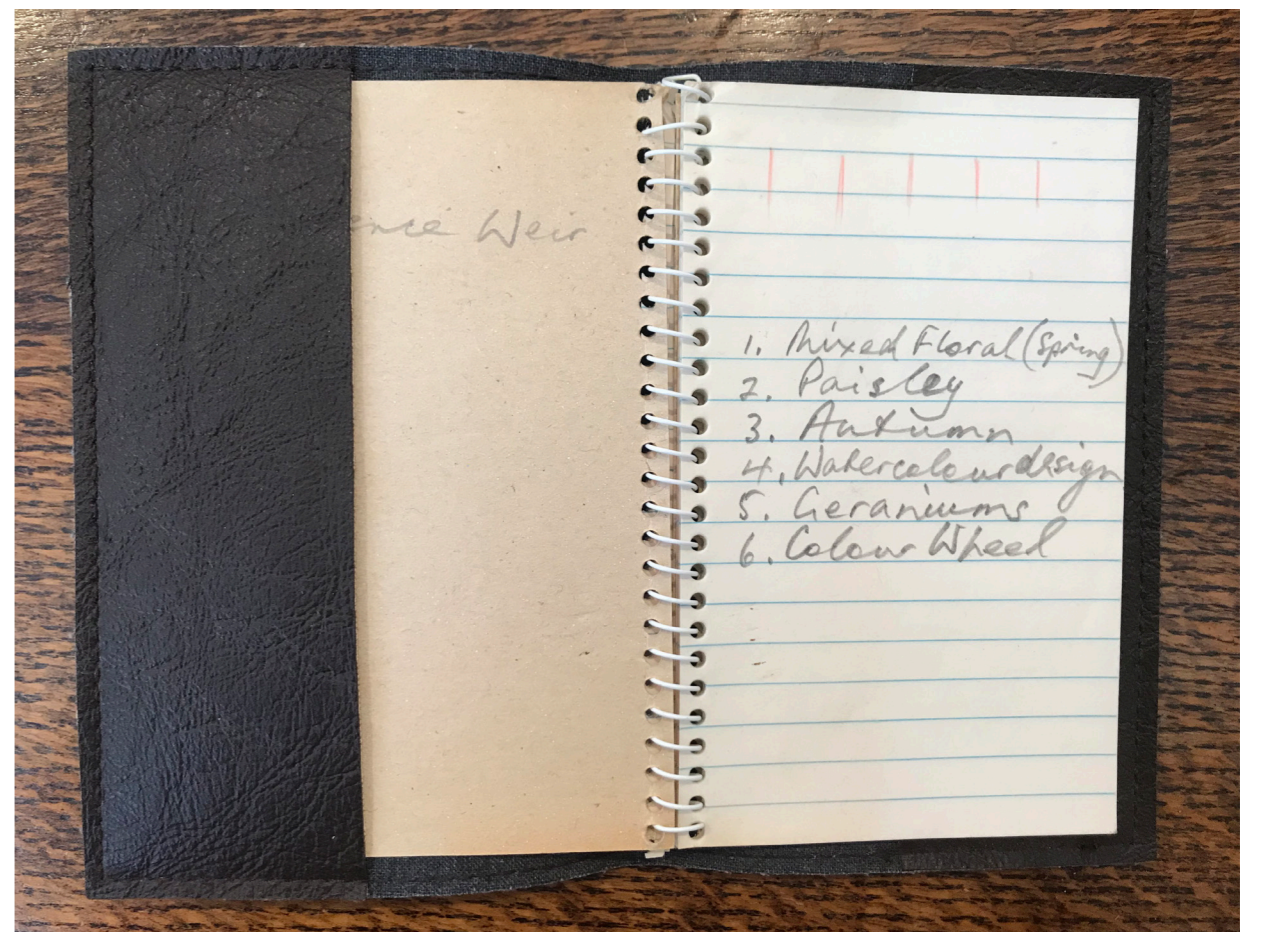 Weir
1. Mixed Floral (Spring)
2. Paisley
3. Autumn
4. Watercolour design
5. Geraniums
6. Colour Wheel